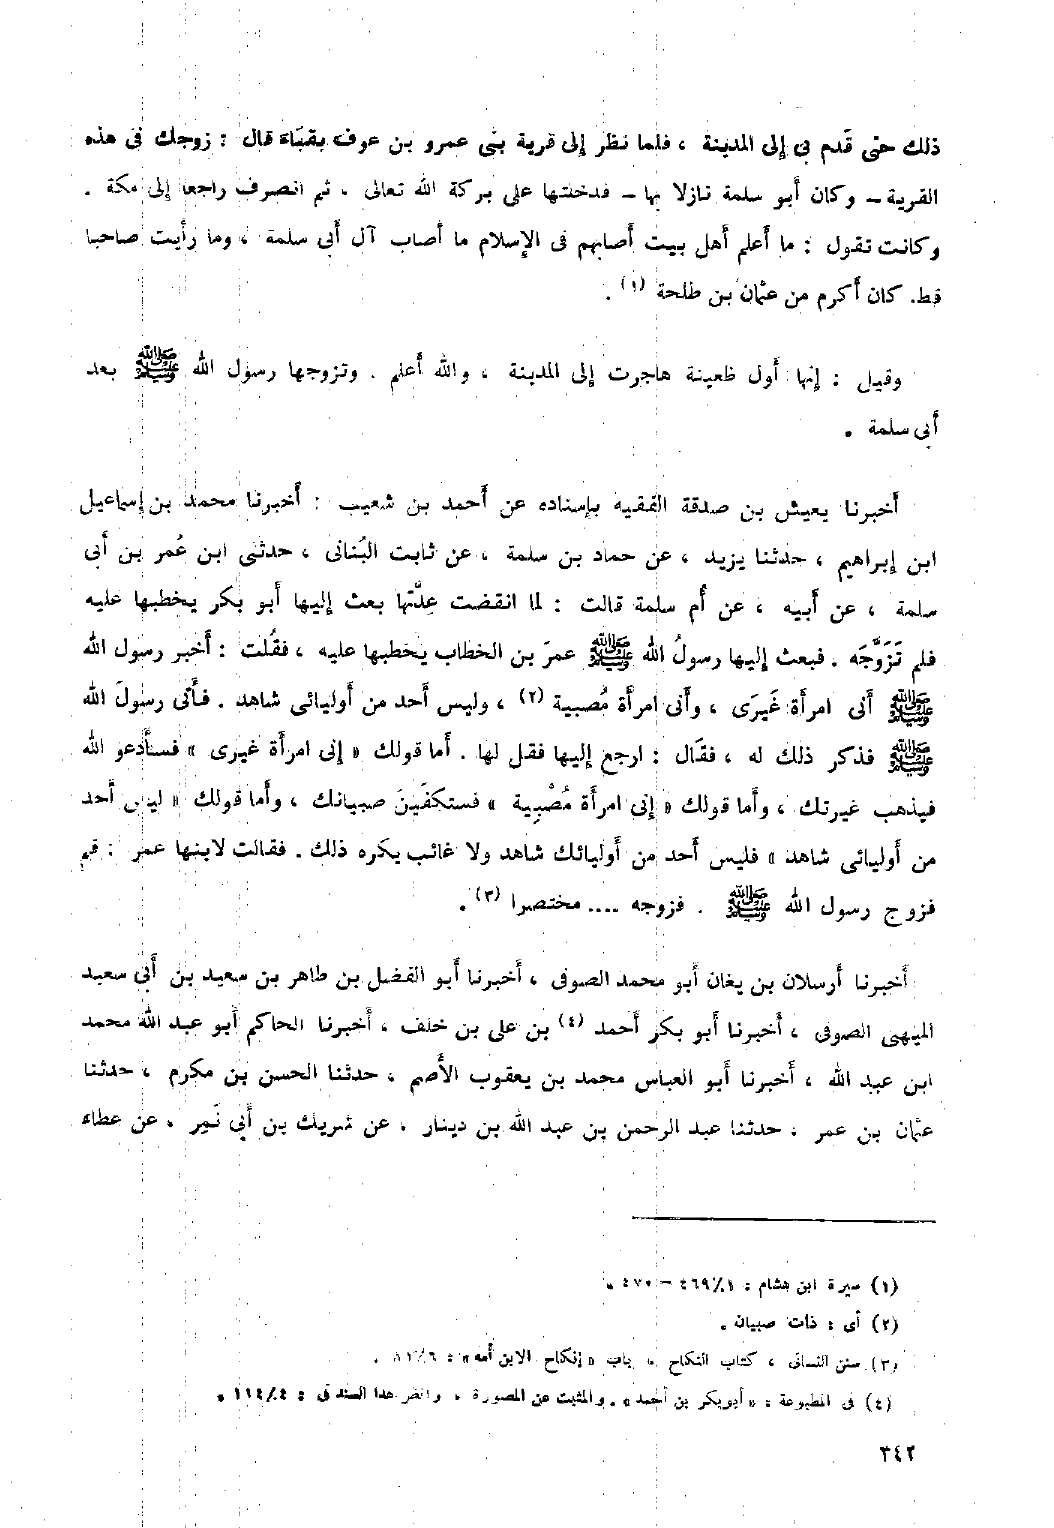 ذلك حتى قَدم بى إلى المدينة ، فلما نظر إلى قرية بنى عمرو بن عوف بقبَاء قال : زوجك فى هذه
القرية – وكان أبو سلمة نازلا بها – فدخلتها على بركة الله تعالى . ثم انصرف راجعا إلى مكة .
وكانت تقول : ما أعلم أهل بيت أصابهم فى الإسلام ما أصاب آل أبى سلمة ، وما رأيت صاحبا
قط. كان أكرم من عثمان بن طلحة (١) .
وقيل : إنها أول ظعينة هاجرت إلى المدينة ، والله أعلم . وتزوجها رسول الله ﷺ بعد
أبى سلمة .
أخبرنا يعيش بن صدقة الفقيه بإسناده عن أحمد بن شعيب : أخبرنا محمد بن إسماعيل
ابن إبراهيم ، حدثنا يزيد ، عن حماد بن سلمة ، عن ثابت البُنانى ، حدثنى ابن عُمر بن أبى
سلمة ، عن أبيه ، عن أم سلمة قالت : لما انقضت عِدَّتها بعث إليها أبو بكر يخطبها عليه
فلم تَزَوَّجَه . فبعث إليها رسولُ الله ﷺ عمرَ بن الخطاب يخطبها عليه ، فقُلت : أخبر رسول الله
ﷺ أنى امرأة غَيرَى ، وأنى امرأة مُصبية (٢) ، وليس أحد من أوليائى شاهد . فأتى رسولَ الله
ﷺ فذكر ذلك له ، فقال : ارجع إليها فقل لها . أما قولك « إنى امرأة غيرى » فسأدعو الله
فيذهب غيرتك ، وأما قولك « إنى امرأة مُصْبِية » فستكفَينَ صبيانك ، وأما قولك « ليس أحد
من أوليائى شاهد » فليس أحد من أوليائك شاهد ولا غائب يكره ذلك . فقالت لابنها عمر : قم
فزوج رسول الله ﷺ . فزوجه .... مختصرا (٣) .
أخبرنا أرسلان بن يغان أبو محمد الصوفى ، أخبرنا أبو الفضل بن طاهر بن سعيد بن أبى سعيد
الميهنى الصوفى ، أخبرنا أبو بكر أحمد (٤) بن على بن خلف ، أخبرنا الحاكم أبو عبد الله محمد
ابن عبد الله ، أخبرنا أبو العباس محمد بن يعقوب الأصم ، حدثنا الحسن بن مكرم ، حدثنا
عثمان بن عمر ، حدثنا عبد الرحمن بن عبد الله بن دينار ، عن شريك بن أبى نَمِر ، عن عطاء
(١) سيرة ابن هشام : ١/٤٦٩ – ٤٧٠ .
(٢) أى : ذات صبيان .
(٣) سنن النسائى ، كتاب النكاح ، باب « إنكاح الابن أمه » : ٦/٨١ .
(٤) فى المطبوعة : « أبو بكر بن أحمد » . والمثبت عن المصورة ، وانظر هذا السند فى : ٤/١١٤ .
٣٤٢